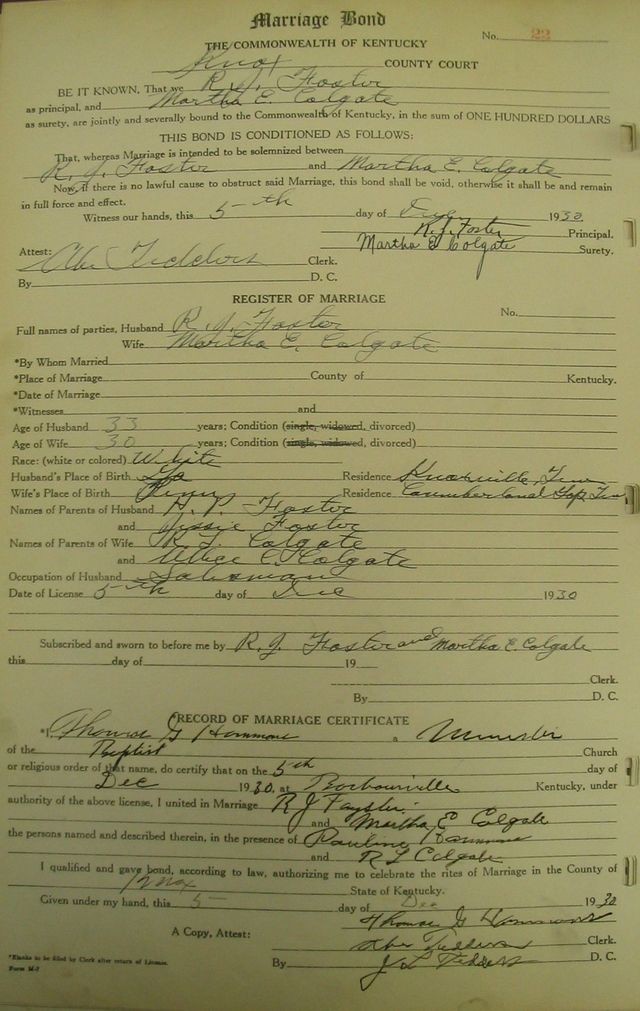 Marriage Bond
No. 22
THE COMMONWEALTH OF KENTUCKY
Knox COUNTY COURT
BE IT KNOWN, That we R. J. Foster
as principal, and Martha E. Colgate
as surety, are jointly and severally bound to the Commonwealth of Kentucky, in the sum of ONE HUNDRED DOLLARS
THIS BOND IS CONDITIONED AS FOLLOWS:
That, whereas Marriage is intended to be solemnized between
R. J. Foster and Martha E. Colgate
Now, if there is no lawful cause to obstruct said Marriage, this bond shall be void, otherwise it shall be and remain
in full force and effect.
Witness our hands, this 5th day of Dec 1930
R. J. Foster Principal.
Martha E Colgate Surety.
Attest:
Clerk.
By D. C.
REGISTER OF MARRIAGE
No.
Full names of parties, Husband R. J. Foster
Wife Martha E. Colgate
*By Whom Married
*Place of Marriage County of Kentucky.
*Date of Marriage
*Witnesses and
Age of Husband 33 years; Condition (single, widowed, divorced)
Age of Wife 30 years; Condition (single, widowed, divorced)
Race: (white or colored) White
Husband's Place of Birth Ga Residence Knoxville, Tenn
Wife's Place of Birth Residence Cumberland Gap, Tenn
Names of Parents of Husband R. P. Foster
and Jessie Foster
Names of Parents of Wife R. L. Colgate
and Alice C. Colgate
Occupation of Husband Salesman
Date of License 5th day of Dec 1930
Subscribed and sworn to before me by R. J. Foster and Martha E. Colgate
this day of 19
Clerk.
By D. C.
RECORD OF MARRIAGE CERTIFICATE
*I, Thomas G Hammons a Minister
of the Baptist Church
or religious order of that name, do certify that on the 5th day of
Dec 1930, at Barbourville Kentucky, under
authority of the above license, I united in Marriage R J
and Martha E Colgate
the persons named and described therein, in the presence of Pauline Hammons
and R L Colgate
I qualified and gave bond, according to law, authorizing me to celebrate the rites of Marriage in the County of
Knox State of Kentucky.
Given under my hand, this 5 day of Dec 1930
Thomas G Hammons
A Copy, Attest: Clerk.
By D. C.
*Blanks to be filled by Clerk after return of License.
Form M-7